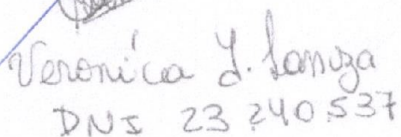 Veronica J. Lanuza
DNI 23 240.537